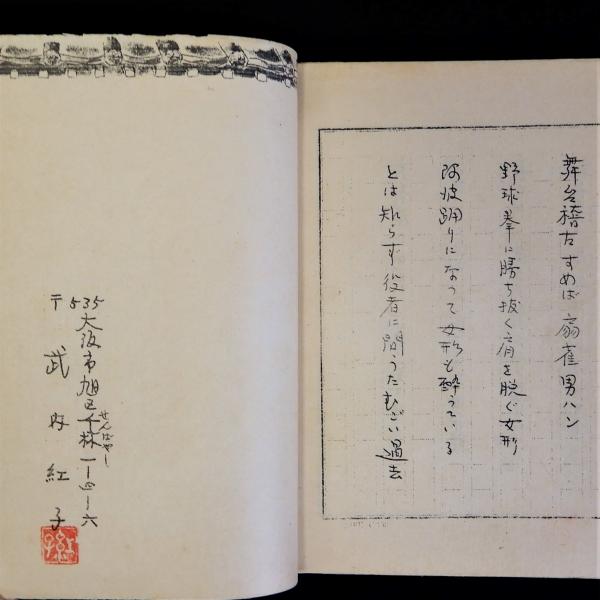 舞台稽古すめば扇雀男ハン
野球拳に勝ち抜く肩を脱ぐ女形
阿波踊りになって女形も酔うている
とは知らず役者に問うたむごい過去
〒535
大阪市旭区千林一ー四ー六
せんばやし
武内紅子